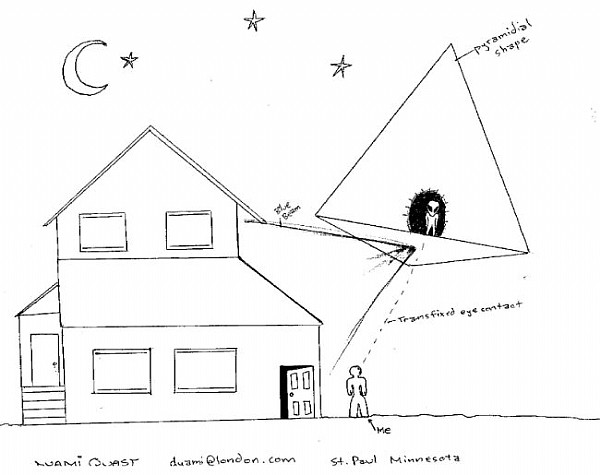 pyramidial
shape
Blue
Beam
Transfixed eye contact
Me
DUAMI QUAST duami@london.com St. Paul Minnesota